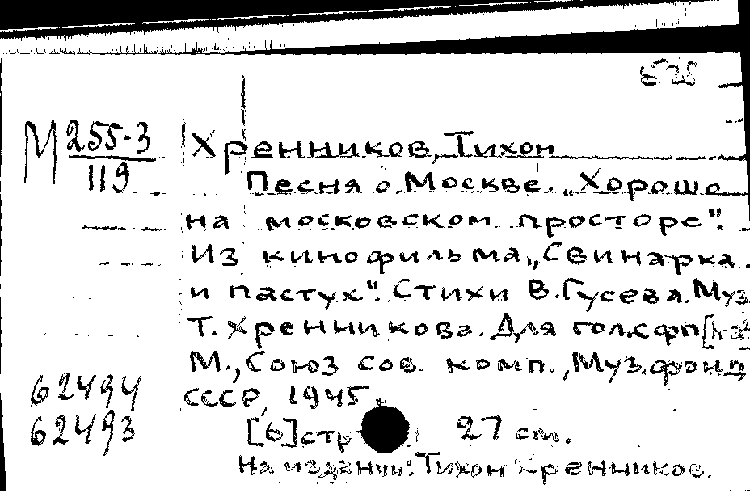 М 255-3
119
Хренников, Тихон
Песня о Москве. "Хорошо
на московском просторе".
Из кинофильма "Свинарка
и пастух". Стихи В. Гусева. Муз.
Т. Хренникова. Для гол. с фп
М., Союз сов. комп., Муз. фонд
СССР, 1945
62494
62493
[6] стр 27 см.
На издании: Тихон Хренников.